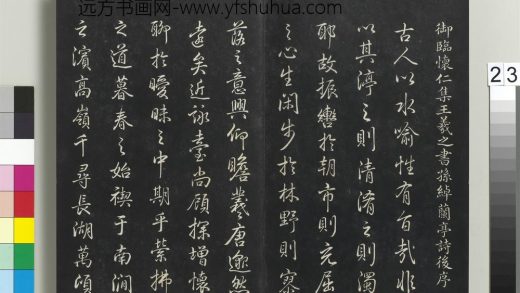 远方书画网-www.yfshuhua.com
御臨懷仁集王羲之書孫綽蘭亭詩後序
古人以水喻性有旨哉非
以其渟之則清淆之則濁
耶故振轡於朝市則充屈
之心生閑步於林野則寥
落之意興仰瞻羲唐邈然
遠矣近詠臺尚顧探增懷
聊於曖昧之中期乎瑩拂
之道暮春之始禊于南澗
之濱高嶺千尋長湖萬頃
2 3